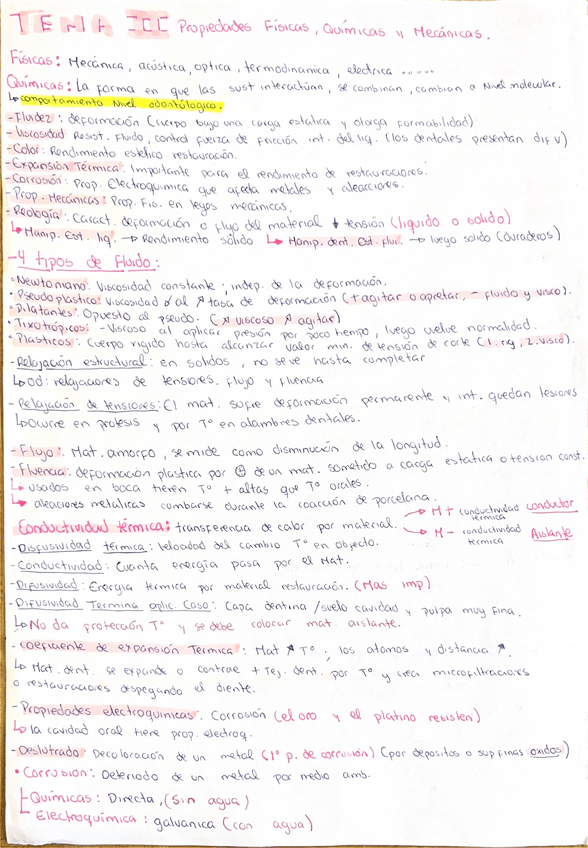 TEMA III Propiedades Físicas, Químicas y Mecánicas.
Físicas: Mecánica, acústica, optica, termodinamica, electrica .....
Químicas: La forma en que las sust interactúan, se combinan, cambian a Nivel molecular.
↳ comportamiento Nivel odontólogico.
- Fluidez: deformación (cuerpo bajo una carga estatica y otorga formabilidad)
- Viscosidad Resist. Fluido, control fuerza de fricción int. del liq. (los dentales presentan dif v)
- Color: Rendimiento estetico restauración.
- Expansión Térmica: Importante para el rendimiento de restauraciones.
- Corrosión: Prop. Electroquimica que afecta metales y aleacciones.
- Prop. Mecánicas: Prop. Fis. en leyes mecánicas.
- Reología: Caract. deformación o flujo del material ↓ tensión (liquido o solido)
↳ Manip. Est. liq. → Rendimiento solido ↳ Manip. dent. Est. flui. → luego solido (duraderos)
- 4 tipos de Fluido:
• Newtoniano: Viscosidad constante; indep. de la deformación.
• Pseudoplastico: Viscosidad ↓ al ↗ tasa de deformación (+ agitar o apretar, - fluido y visco).
• Dilatantes: Opuesto al pseudo. (↗ viscoso ↗ agitar)
• Tixotrópicos: - Viscoso al aplicar presión por poco tiempo, luego vuelve normalidad.
• Plasticos: Cuerpo rigido hasta alcanzar valor min. de tensión de corte (1. rig, 2. visco).
- Relajación estructural: en solidos, no se ve hasta completar
↳ od: relajaciones de tensiones, flujo y fluencia
- Relajación de tensiones: El mat. sufre deformación permanente y int. quedan lesiones
↳ Ocurre en protesis y por T° en alambres dentales.
- Flujo: Mat. amorfo, se mide como disminución de la longitud.
- Fluencia: deformación plastica por ⊕ de un mat. sometido a carga estatica o tension const.
↳ usados en boca tienen T° + altas que T° orales.
↳ aleaciones metalicas combarse durante la coacción de porcelana.
Conductividad térmica: transferencia de calor por material. → M+ conductividad térmica conductor
→ M- conductividad térmica Aislante
- Disfusividad térmica: Velocidad del cambio T° en objecto.
- Conductividad: Cuanta energía pasa por el Mat.
- Difusividad: Energia termica por material restauración. (Mas imp)
- Difusividad Termina aplic. Caso: Capa dentina / suelo cavidad y pulpa muy fina.
↳ No da protección T° y se debe colorar mat. aislante.
- Coeficiente de expansión Termica: Mat ↗ T°; los atomos y distancia ↗.
↳ Mat. dent. se expande o contrae + Tej. dent. por T° y crea microfiltraciones
o restauraciones despegando el diente.
- Propiedades electroquimicas. Corrosión (el oro y el platino resisten)
↳ la cavidad oral tiene prop. electroq.
- Deslutrado: Decoloración de un metal (1° p. de corrosión) (por depositos o sup finas oxidos)
• Corrosion: Deteriodo de un metal por medio amb.
Químicas: Directa, (sin agua)
Electroquímica: galvanica (con agua)